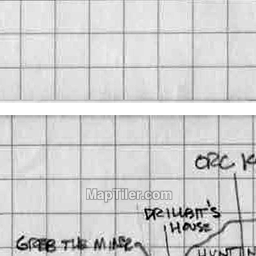 ORC
MapTiler.com
DRILLBIT'S
HOUSE
GREB THE MINER
HUNTIN